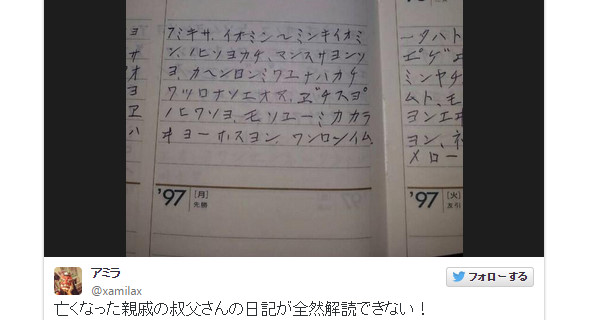 ヨ
サ
オ
ヨ
ヱ
ハ
アミキサ、イオミン〜ミンキイオミ
ン、ノヒソヨカチ、マンスサヨンソ
ヨ、カヘンロンミワエナハカチ
ワツロナソエオス、ヱ゛チスポ
ノヒワソヨ、モソエーミカカラ
キヨーホスヨン、ワンロンイム、
'97
[月]
先勝
ータハト
ミンヤチ
ムト、モ
ヨンエヱ
ヨン、ネ
メロー
'97
[火]
友引
アミラ
@xamilax
フォローする
亡くなった親戚の叔父さんの日記が全然解読できない！